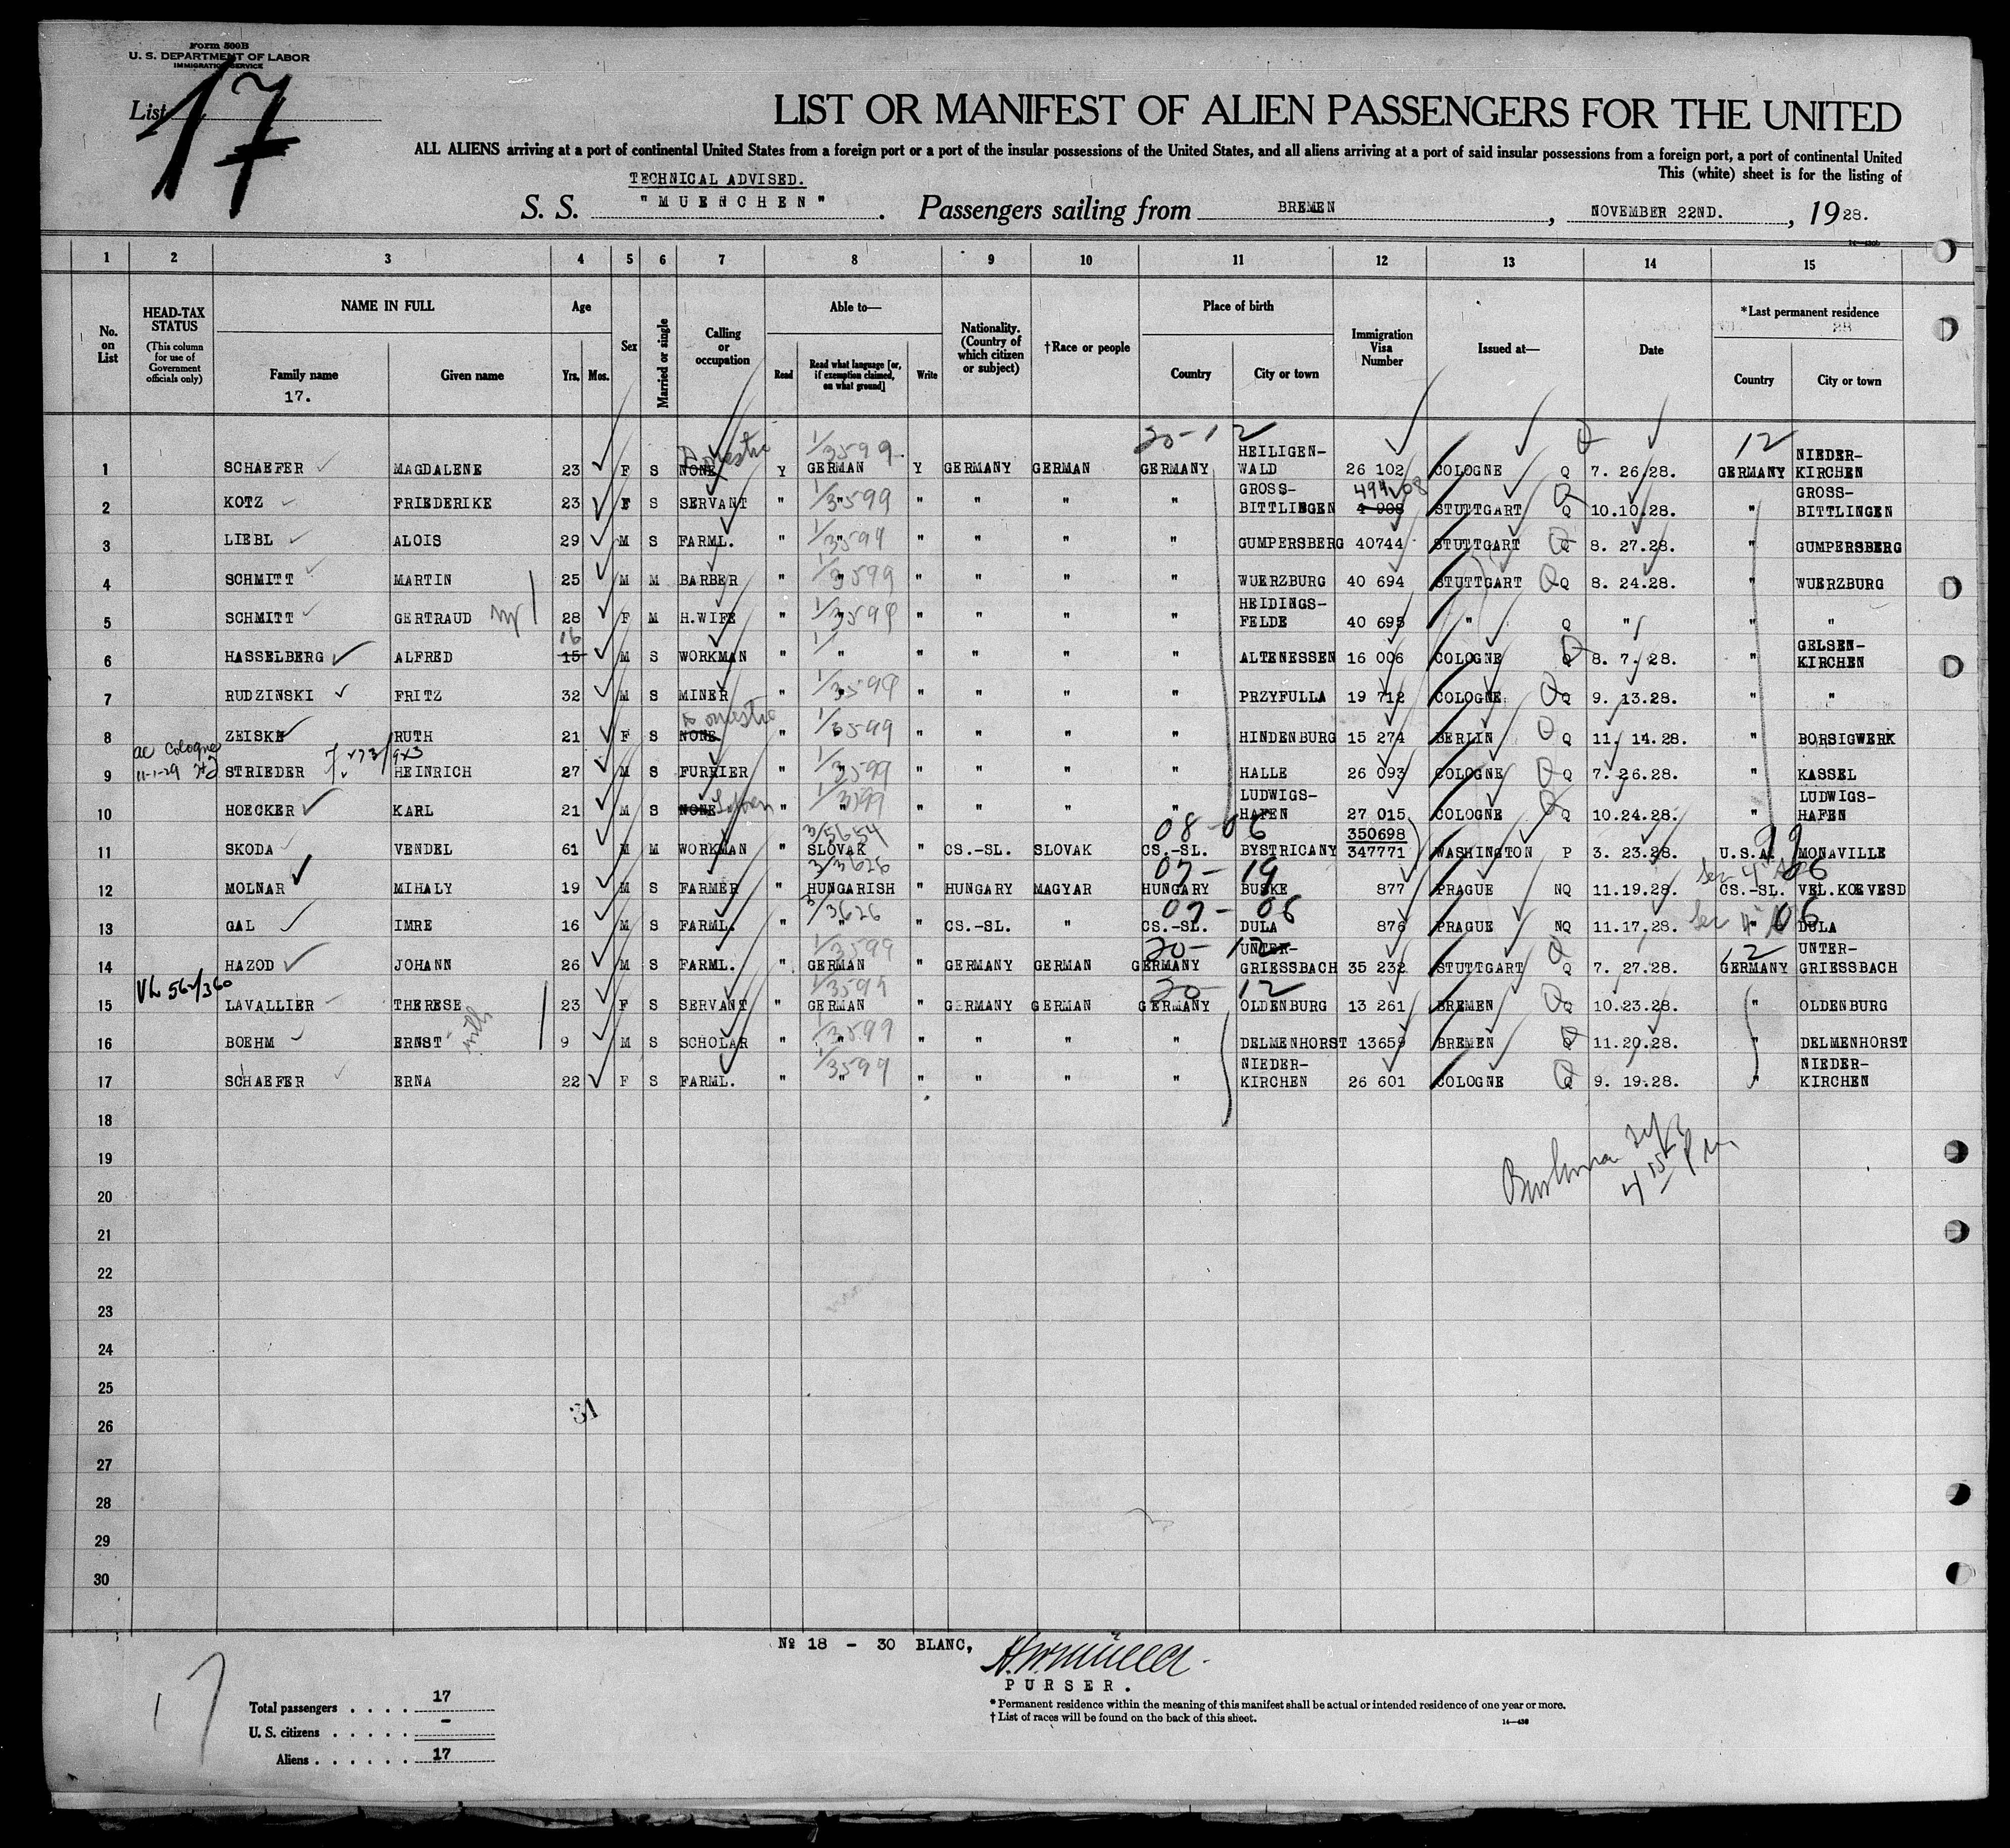 Form 500B
U. S. DEPARTMENT OF LABOR
IMMIGRATION SERVICE
List 17
LIST OR MANIFEST OF ALIEN PASSENGERS FOR THE UNITED
ALL ALIENS arriving at a port of continental United States from a foreign port or a port of the insular possessions of the United States, and all aliens arriving at a port of said insular possessions from a foreign port, a port of continental United
This (white) sheet is for the listing of
TECHNICAL ADVISED.
S. S. "MUENCHEN". Passengers sailing from BREMEN, NOVEMBER 22ND., 1928.
1 2 3 4 5 6 7 8 9 10 11 12 13 14 15
No. on List
HEAD-TAX STATUS
(This column for use of Government officials only)
NAME IN FULL
Family name
17.
Given name
Age
Yrs. Mos.
Sex
Married or single
Calling or occupation
Able to—
Read
Read what language [or, if exemption claimed, on what ground]
Write
Nationality. (Country of which citizen or subject)
†Race or people
Place of birth
Country
City or town
Immigration Visa Number
Issued at—
Date
*Last permanent residence
Country
City or town
1 SCHAEFER MAGDALENE 23 F S NONE Domestic Y 1/3599 GERMAN Y GERMANY GERMAN 20-12 GERMANY HEILIGEN-WALD 26 102 COLOGNE Q 7. 26.28. 12 GERMANY NIEDER-KIRCHEN
2 KOTZ FRIEDERIKE 23 F S SERVANT " 1/3599 " " " " " GROSS-BITTLINGEN 4 908 STUTTGART Q 10.10.28. " GROSS-BITTLINGEN
3 LIEBL ALOIS 29 M S FARML. " 1/3599 " " " " " GUMPERSBERG 40744 STUTTGART Q 8. 27.28. " GUMPERSBERG
4 SCHMITT MARTIN 25 M M BARBER " 1/3599 " " " " " WUERZBURG 40 694 STUTTGART Q 8. 24.28. " WUERZBURG
5 SCHMITT GERTRAUD 28 F M H.WIFE " 1/3599 " " " " " HEIDINGS-FELDE 40 695 " Q " " "
6 HASSELBERG ALFRED 15 16 M S WORKMAN " " " " " " ALTENESSEN 16 006 COLOGNE Q 8. 7. 28. " GELSEN-KIRCHEN
7 RUDZINSKI FRITZ 32 M S MINER " 1/3599 " " " " " PRZYFULLA 19 712 COLOGNE Q 9. 13.28. " "
8 ZEISKE RUTH 21 F S NONE Domestic " 1/3599 " " " " " HINDENBURG 15 274 BERLIN Q 11. 14.28. " BORSIGWERK
9 STRIEDER HEINRICH 27 M S FURRIER " 1/3599 " " " " " HALLE 26 093 COLOGNE Q 7. 26.28. " KASSEL
10 HOECKER KARL 21 M S NONE " 1/3599 " " " " " LUDWIGS-HAFEN 27 015 COLOGNE Q 10.24.28. " LUDWIGS-HAFEN
11 SKODA VENDEL 61 M M WORKMAN " 3/5654 SLOVAK " CS.-SL. SLOVAK 08-06 CS.-SL. BYSTRICANY 350698 347771 WASHINGTON P 3. 23.28. U.S.A. 99 MONAVILLE
12 MOLNAR MIHALY 19 M S FARMER " 3/3626 HUNGARISH " HUNGARY MAGYAR 07-19 HUNGARY BUSKE 877 PRAGUE NQ 11.19.28. CS.-SL. 06 VEL.KOEVESD
13 GAL IMRE 16 M S FARML. " 3/3626 " " CS.-SL. " 07-06 CS.-SL. DULA 876 PRAGUE NQ 11.17.28. " 06 DULA
14 HAZOD JOHANN 26 M S FARML. " 1/3599 GERMAN " GERMANY GERMAN 20-12 GERMANY UNTER-GRIESSBACH 35 232 STUTTGART Q 7. 27.28. 12 GERMANY UNTER-GRIESSBACH
15 LAVALLIER THERESE 23 F S SERVANT " 1/3599 GERMAN " GERMANY GERMAN 20-12 GERMANY OLDENBURG 13 261 BREMEN Q 10.23.28. " OLDENBURG
16 BOEHM ERNST with 9 M S SCHOLAR " 1/3599 " " " " " DELMENHORST 13659 BREMEN Q 11.20.28. " DELMENHORST
17 SCHAEFER ERNA 22 F S FARML. " 1/3599 " " " " " NIEDER-KIRCHEN 26 601 COLOGNE Q 9. 19.28. " NIEDER-KIRCHEN
18
19
20
21
22
23
24
25
26
27
28
29
30
31
№ 18 - 30 BLANC,
PURSER.
17
Total passengers . . . . 17
U. S. citizens . . . . . -
Aliens . . . . . . 17
* Permanent residence within the meaning of this manifest shall be actual or intended residence of one year or more.
† List of races will be found on the back of this sheet.